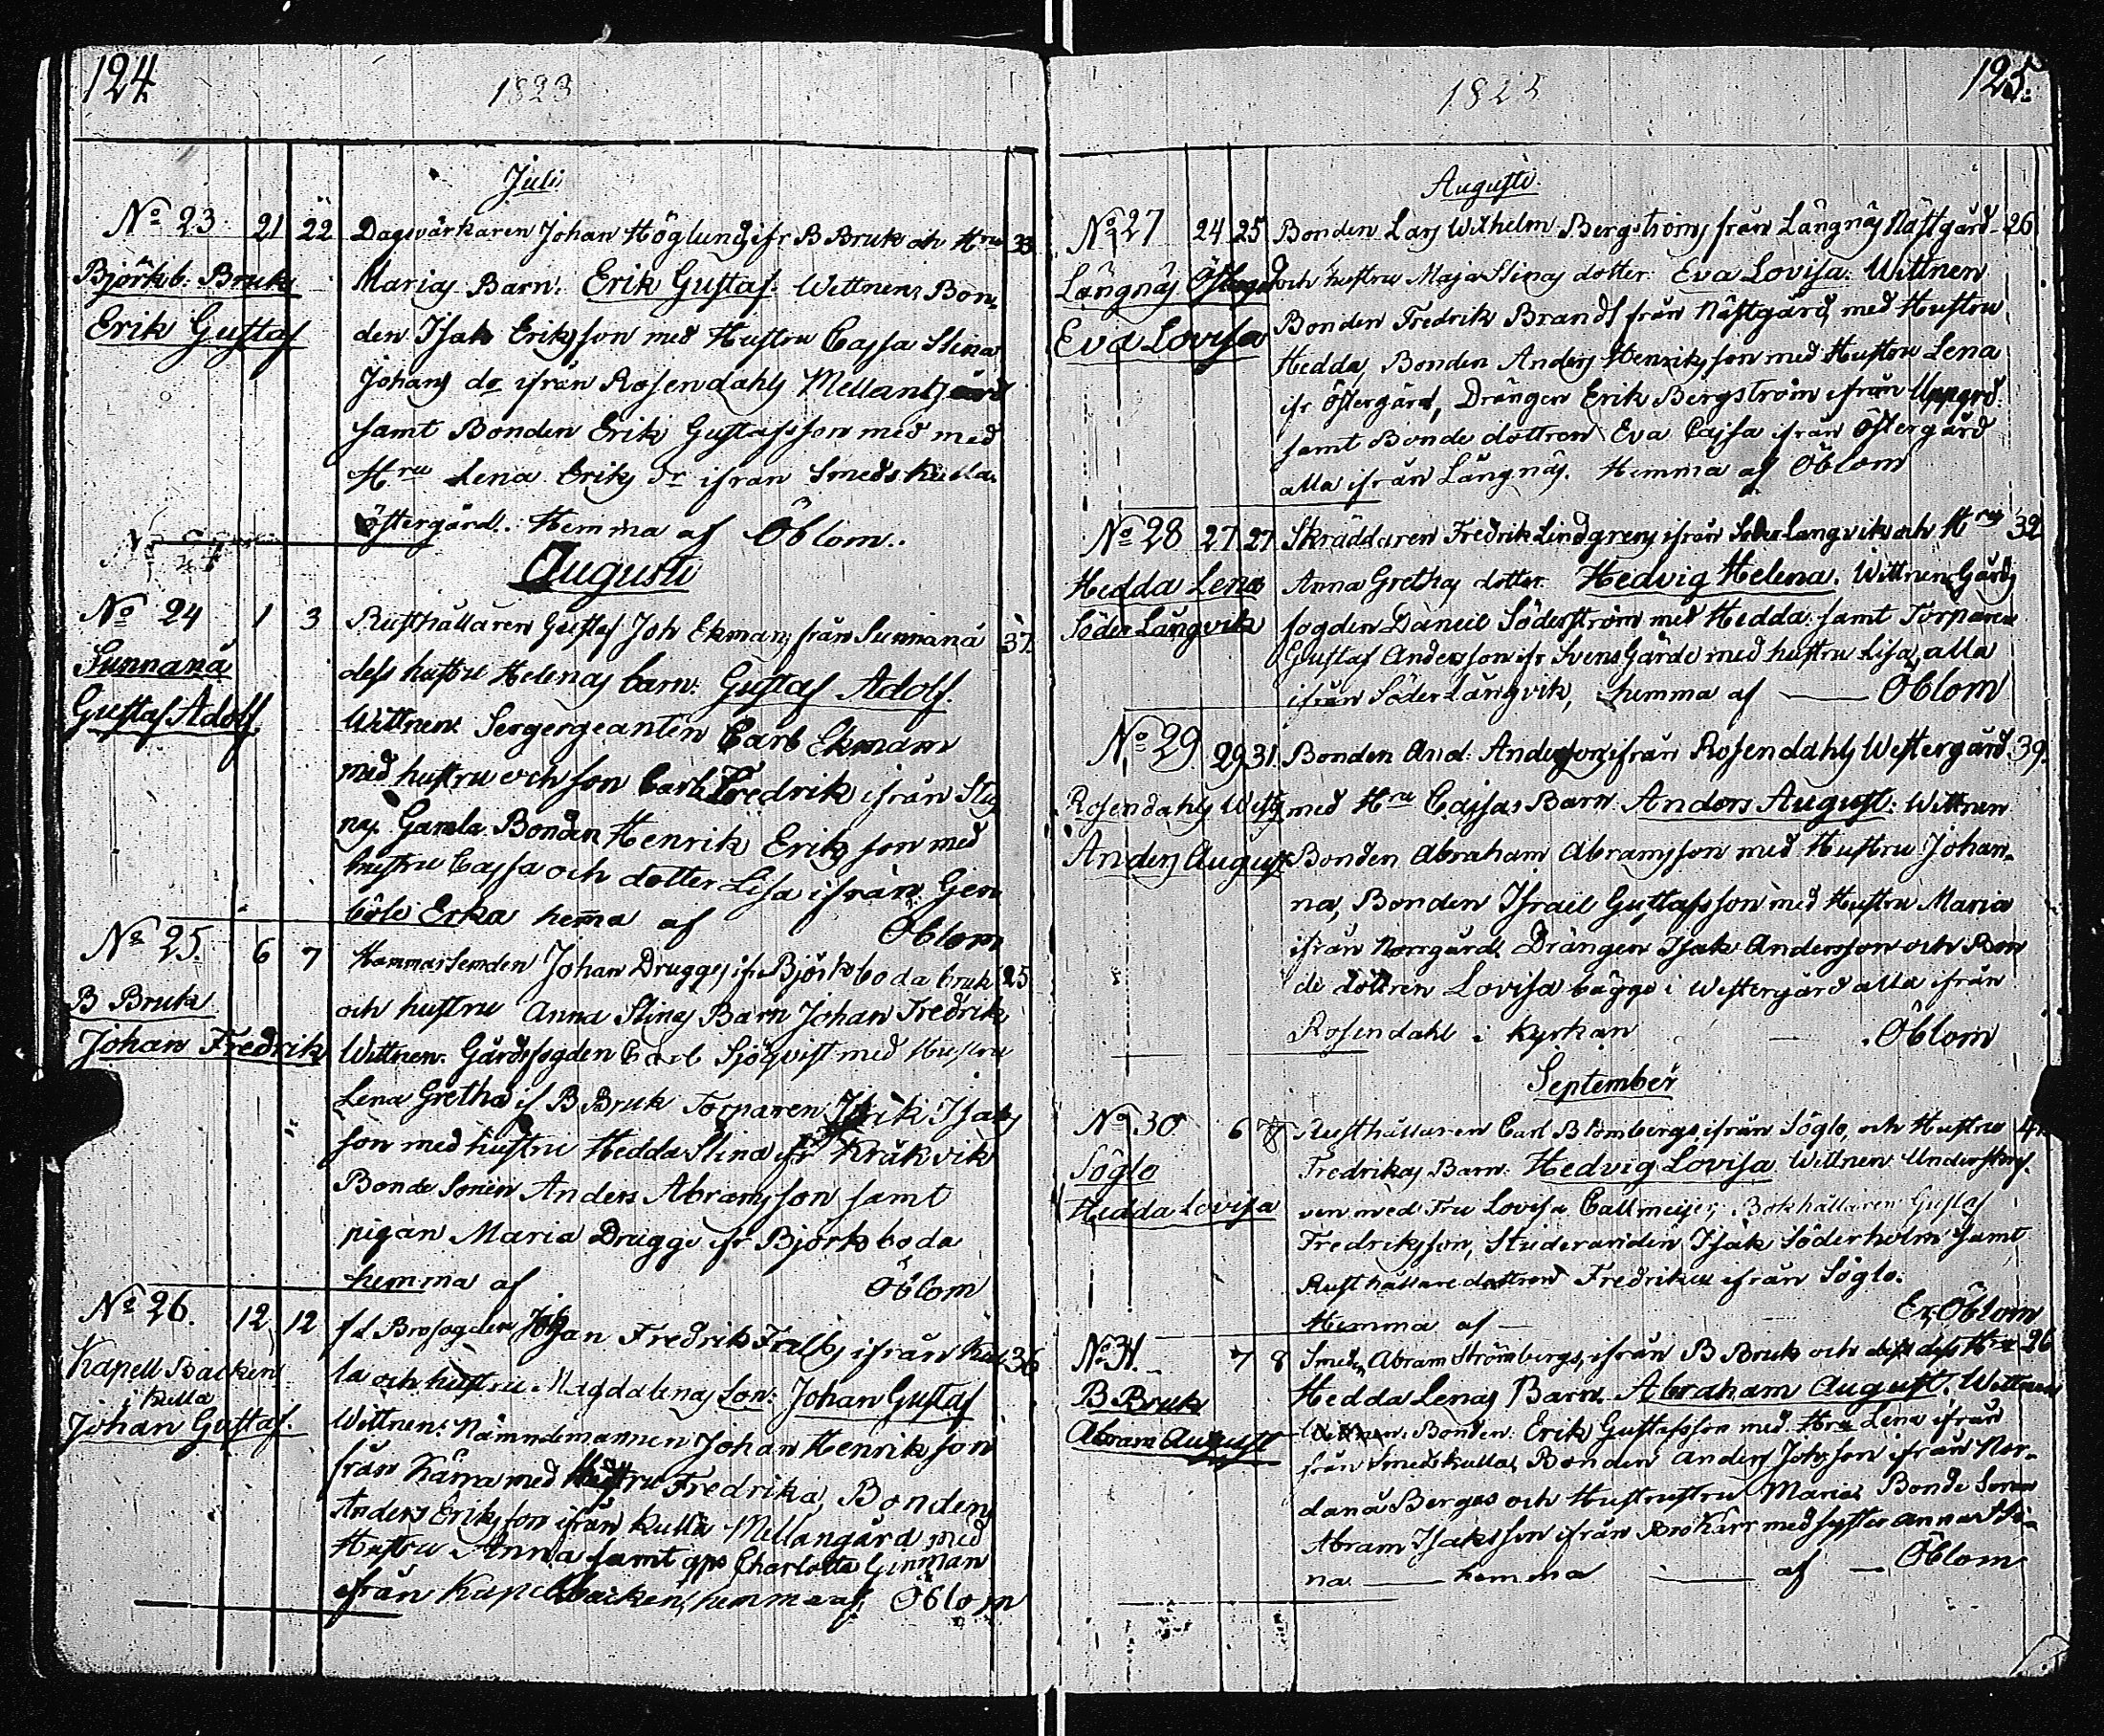 124
1823
Juli
No 23 21 22 Dagsvärkaren Johan Höglunds ifr B Bruk och Hru 33
Björkb. Bruk Marias Barn. Erik Gustaf. Wittnen: Bon-
Erik Gustaf den Isak Eriksson med Hustru Cajsa Stina
Johans dr ifrån Rosendahls Mellangård
samt Bonden Erik Gustafsson med med
Hru Lena Eriks dr ifrån Smedskulla
Östergård. Hemma af Öblom.
Augusti
No 24 1 3 Rusthållaren Gustaf Joh Ekmans från Sunnanå 37.
Sunnanå dess hustru Helenas barn: Gustaf Adolf.
Gustaf Adolf. Wittnen: Sergergeanten Carl Ekmam
med hustru och son Carl Fredrik ifrån Stig
näs Gamla Bonden Henrik Eriksson med
hustru Cajsa och dotter Lisa ifrån Gen
böle Erka hemma af Öblom
No 25. 6 7 Hammarsemden Johan Drugges ifr Björkboda bruk 25
B Bruk och hustru Anna Stinas Barn Johan Fredrik
Johan Fredrik Wittnen: Gårdsfogden Carl Sjöqvist med Hustru
Lena Gretha if B Bruk Torparen Isaks
son med hustru Hedda Stina ifr Kråkvik
Bonde Sonen Anders Abramsson samt
pigan Maria Drugge ifr Björkboda
hemma af Öblom
No 26. 12 12 f d Brofogden Johan Fredrik Falks ifrån Kul 36
Kapell Backen la och hustru Magdalenas Son: Johan Gustaf
i Kulla Wittnen: Nämndemannen Johan Henrikson
Johan Gustaf. från Kärra med Hustru Fredrika, Bonden
Anders Eriksson ifrån Kulla Mellangård med
Hustru Anna samt Charlotta Genman
ifrån Kapellbacken, hemma af Öblom
125.
182
Augusti.
No 27 24 25 Bonden Lars Wilhelm Bergströms från Långnäs Nästgård 26
Långnäs Östergd och hustru Maja Stinas dotter: Eva Lovisa. Wittnen
Eva Lovisa Bonden Fredrik Brandt från Nästgård med Hustru
Hedda, Bonden Anders Henriksson med Hustru Lena
ifr Östergård, Drängen Erik Bergström ifrån Uppgrd.
samt Bonde dottren Eva Cajsa ifrån Östergård
alla ifrån Långnäs. Hemma af Öblom
No 28 27 27 Skräddaren Fredrik Lindgrens ifrån Söder Langvik och Hrus 32
Hedda Lena Anna Grethas dotter Hedvig Helena. Wittnen Gårds
Söder Långvik fogden Daneil Söderström med Hedda samt Torparen
Gustaf Andersson ifr Svens Gärde med hustru Lisa, alla
ifrån Söder Långvik, hemma af — Öblom
No 29 29 31. Bonden And: Anderssons ifrån Rosendahls Westergård 39.
Rosendahls Westg med Hru Cajsas Barn Anders August: Wittnen
Anders August Bonden Abraham Abramsson med Hustru Johan-
na, Bonden Israel Gustafsson med Hustru Maria
ifrån Norrgård Drängen Isak Andersson och Bon
de döttren Lovisa bägge i Westergård alla ifrån
Rosendahl i kyrkan — Öblom
September
No 30 6 Rusthållaren Carl Blombergs ifrån Söglo, och Hustru
Söglo Fredrikas Barn. Hedvig Lovisa Wittnen
Hedda Lovisa ven med Fru Lovisa Callmeijer, Bokhållaren Gustaf
Fredriksson, Studeranden Isak Söderholm samt
Rusthållare dottren Fredrika ifrån Söglo.
Hemma af — Er: Öblom
No 31. 7 8 Smeden Abram Strömbergs, ifrån B Bruk och dess Hru 26
B Bruk Hedda Lenas Barn. Abraham August. Wittnen
Abram August Bonden: Erik Gustafsson med Hru Lena ifrån
från Smedskulla, Bonden Anders Johsson ifrån Nor-
danå Bergas och Hustrustru Maria Bonde Sonen
Abram Isaksson ifrån Kärr med syster Anna Sti-
na — hemma — af — Öblom